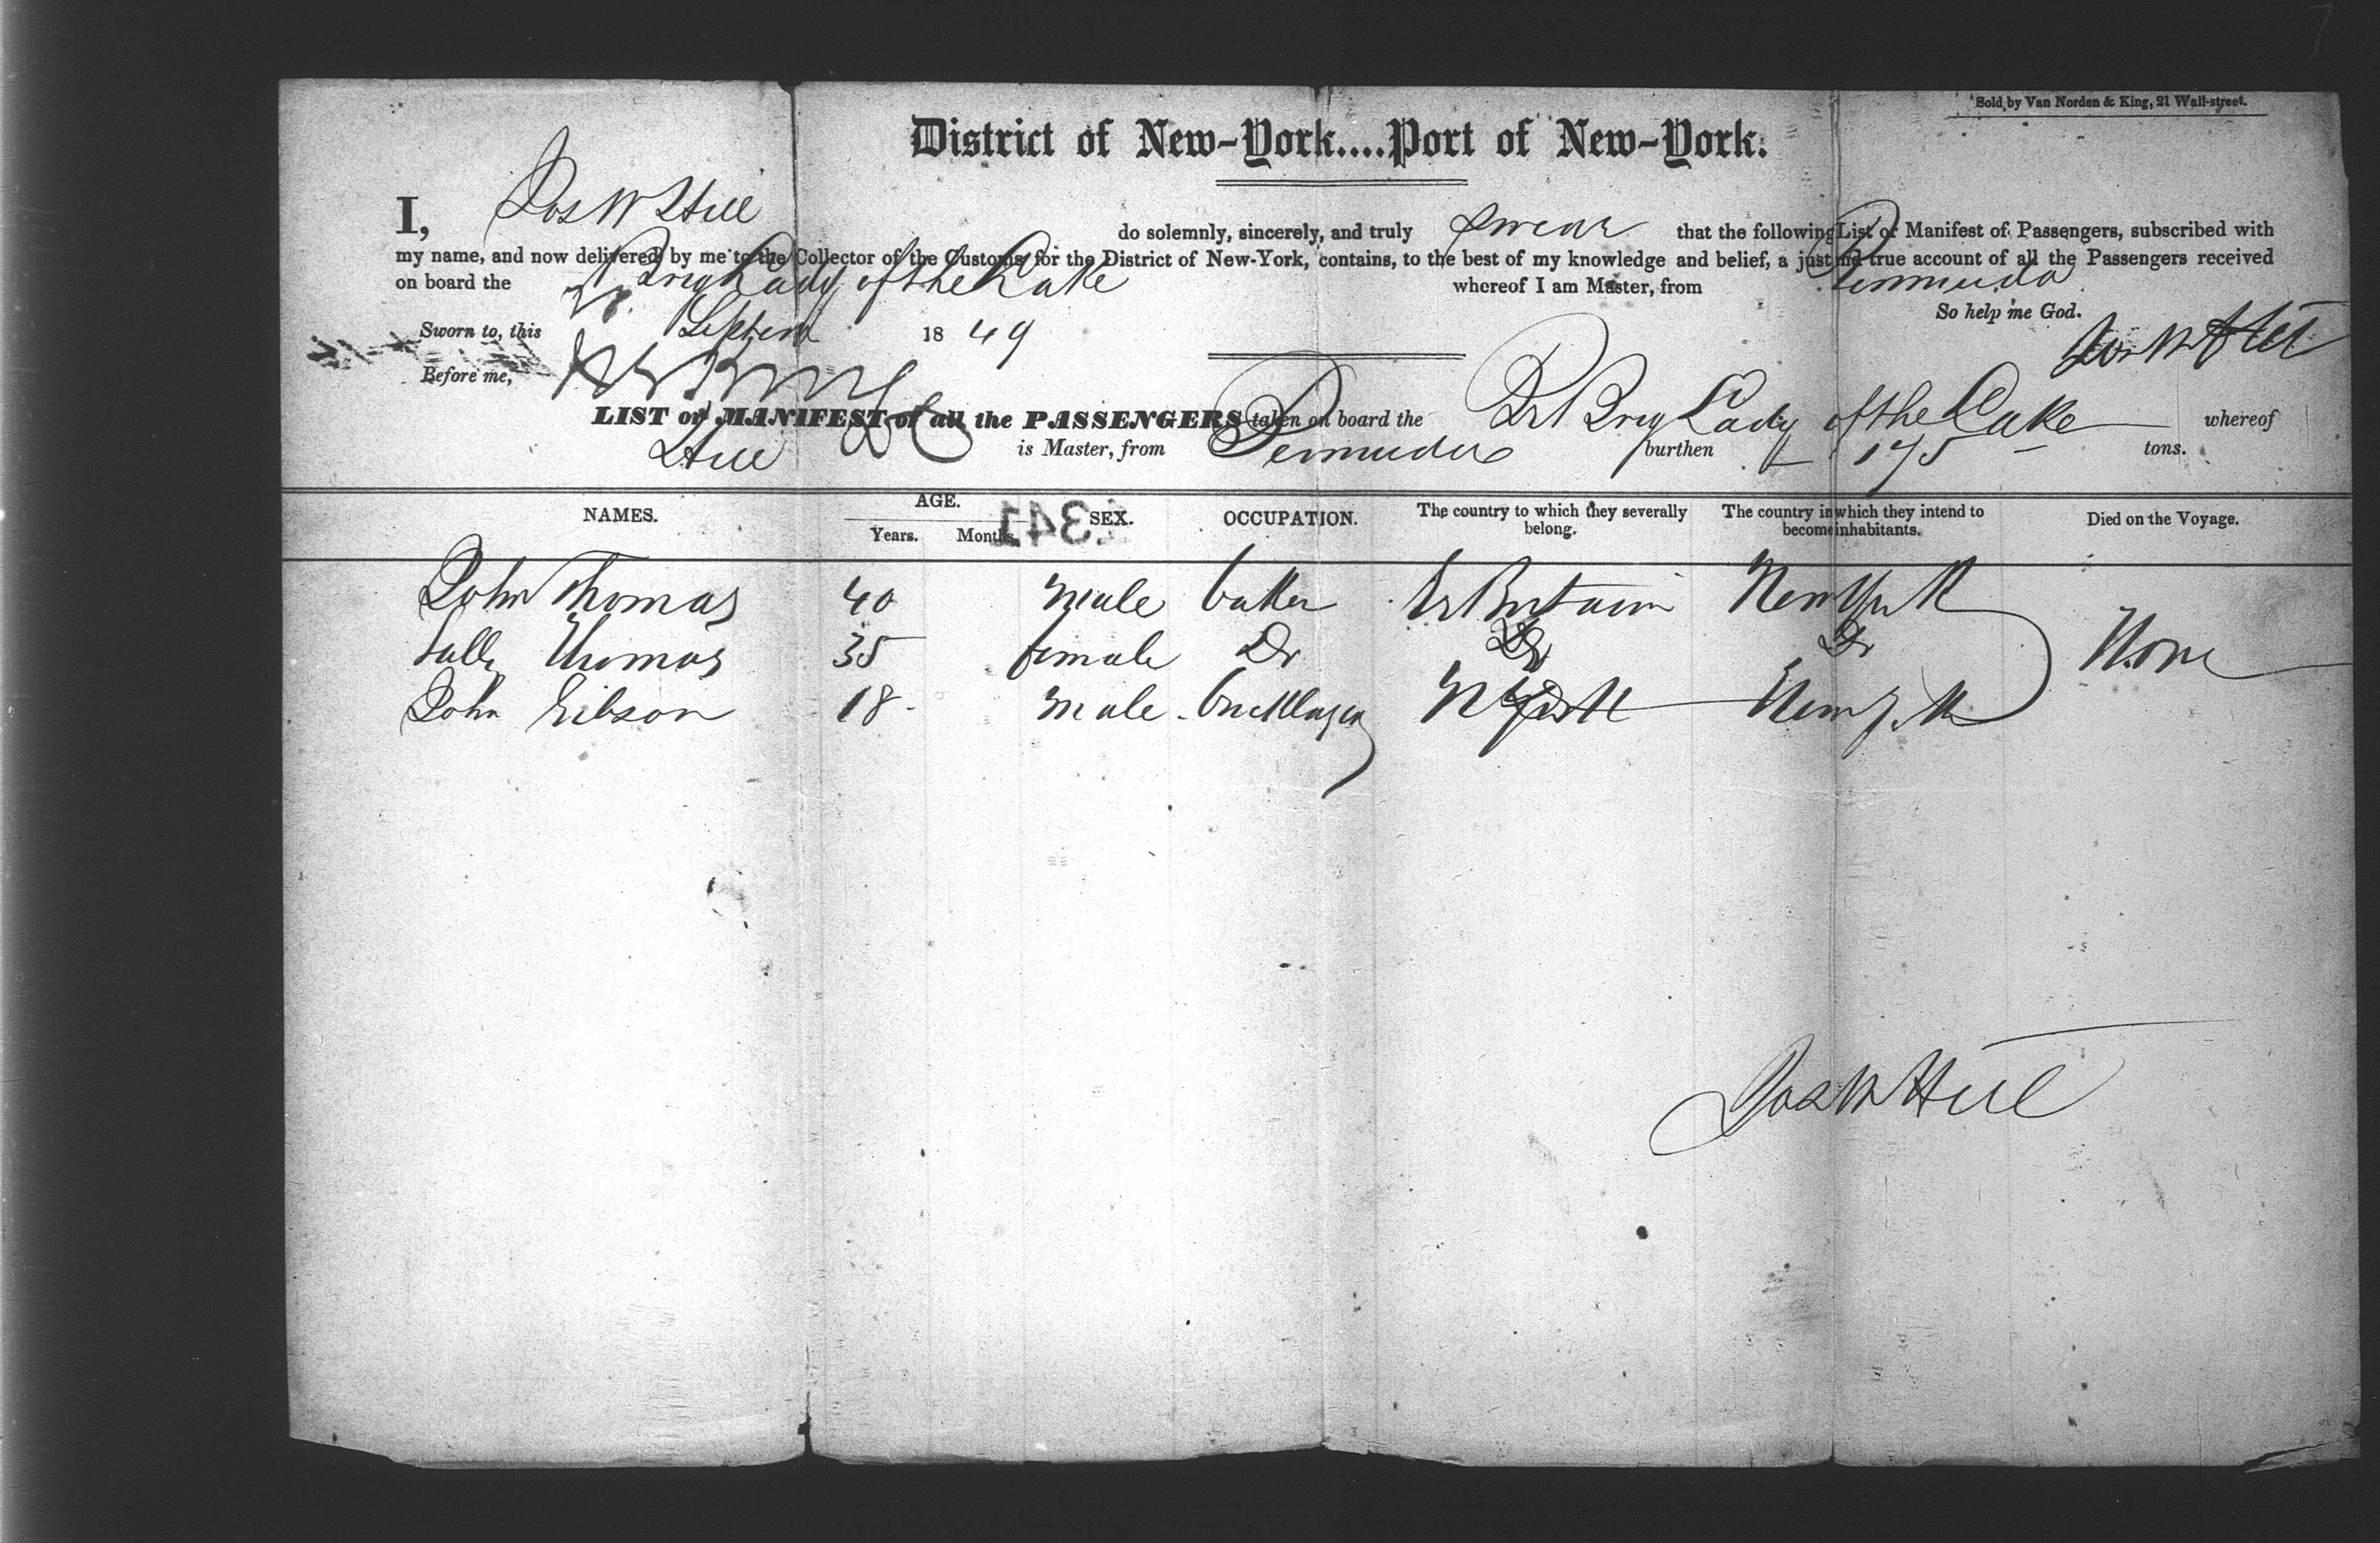 Sold by Van Norden & King, 21 Wall-street.
District of New-York....Port of New-York.
I, Jos W Hill do solemnly, sincerely, and truly swear that the following List or Manifest of Passengers, subscribed with
my name, and now delivered by me to the Collector of the Customs for the District of New-York, contains, to the best of my knowledge and belief, a just and true account of all the Passengers received
on board the Br Brig Lady of the Lake whereof I am Master, from Bermuda
So help me God.
Sworn to, this Septem 1849 Jos W Hill
Before me,
LIST or MANIFEST of all the PASSENGERS taken on board the Br Brig Lady of the Lake whereof
Hill is Master, from Bermuda burthen 175 tons.
NAMES. AGE. SEX. OCCUPATION. The country to which they severally belong. The country in which they intend to become inhabitants. Died on the Voyage.
Years. Months.
2341
John Thomas 40 male baker Gr Britain New York
Sally Thomas 35 female Do Do Do None
John Gibson 18 male Bricklayer N York New York
Jos W Hill